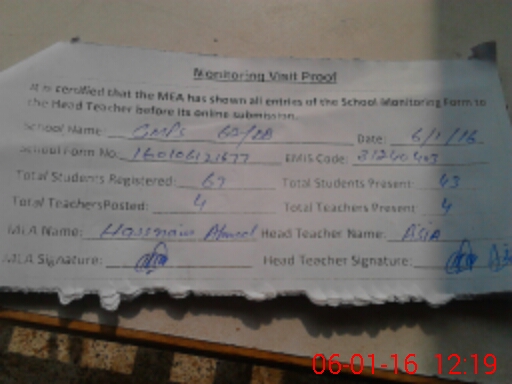 Monitoring Visit Proof
It is certified that the MEA has shown all entries of the School Monitoring Form to
the Head Teacher before its online submission.
School Name: GMPS Date: 6/1/16
School Form No: EMIS Code:
Total Students Registered: Total Students Present: 43
Total TeachersPosted: 4 Total Teachers Present: 4
MEA Name: Head Teacher Name: ASIA
MEA Signature: Head Teacher Signature:
06-01-16 12:19